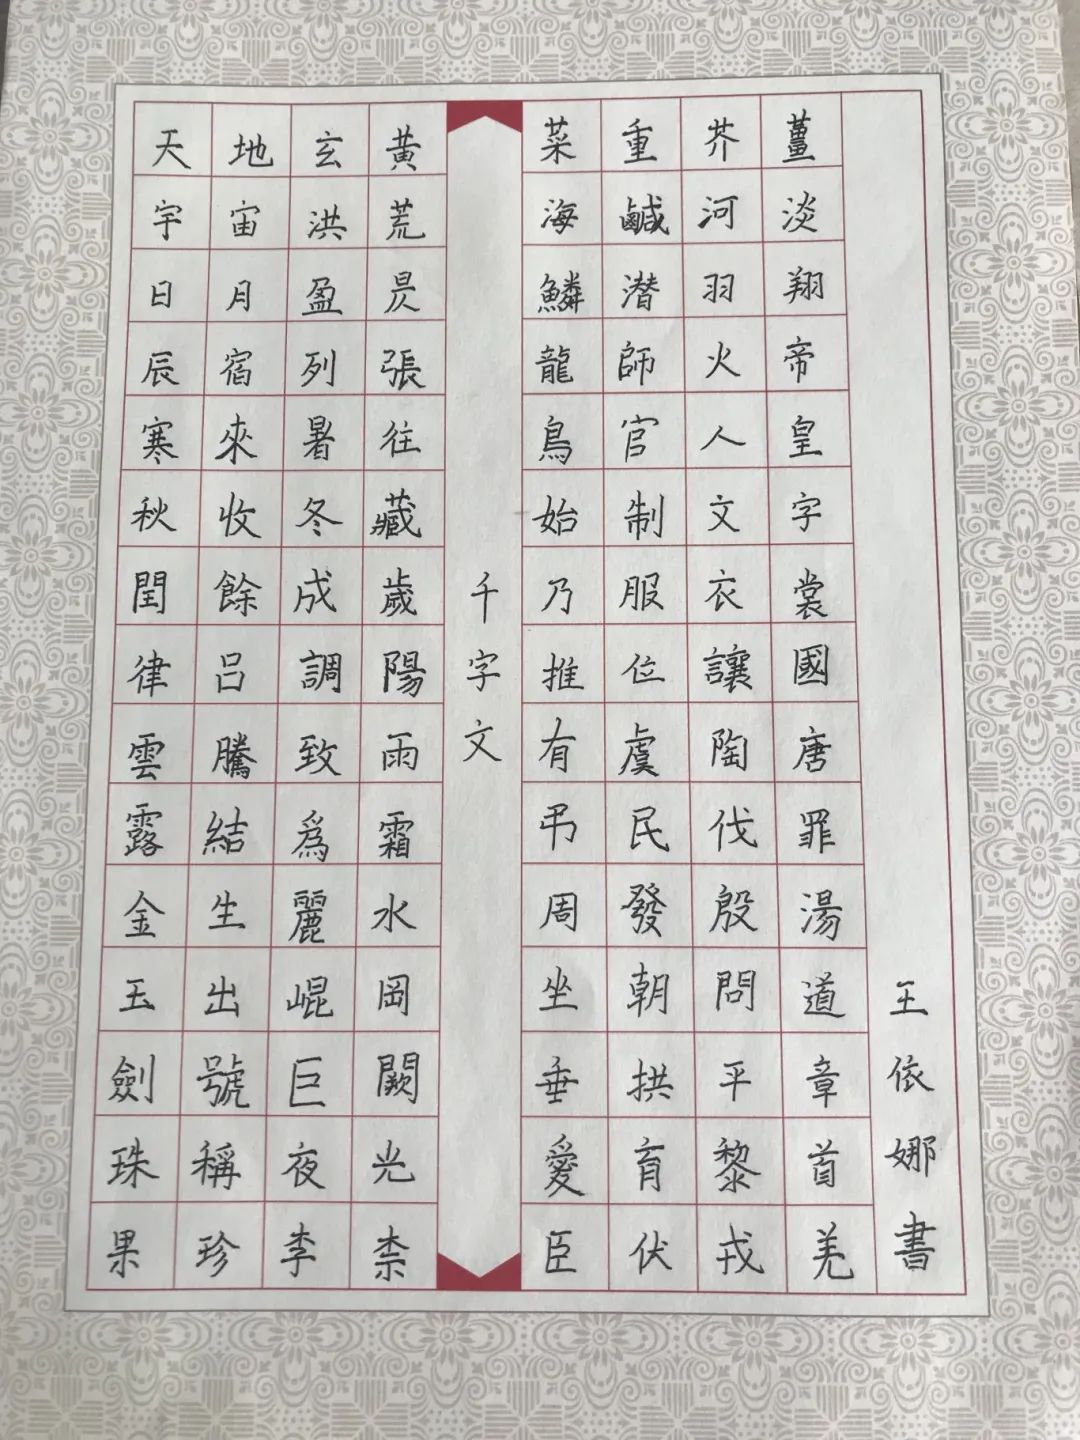 天地玄黃
宇宙洪荒
日月盈昃
辰宿列張
寒來暑往
秋收冬藏
閏餘成歲
律呂調陽
雲騰致雨
露結爲霜
金生麗水
玉出崐岡
劍號巨闕
珠稱夜光
果珍李柰
千字文
菜重芥薑
海鹹河淡
鱗潛羽翔
龍師火帝
鳥官人皇
始制文字
乃服衣裳
推位讓國
有虞陶唐
弔民伐罪
周發殷湯
坐朝問道
垂拱平章
愛育黎首
臣伏戎羌
王依娜書